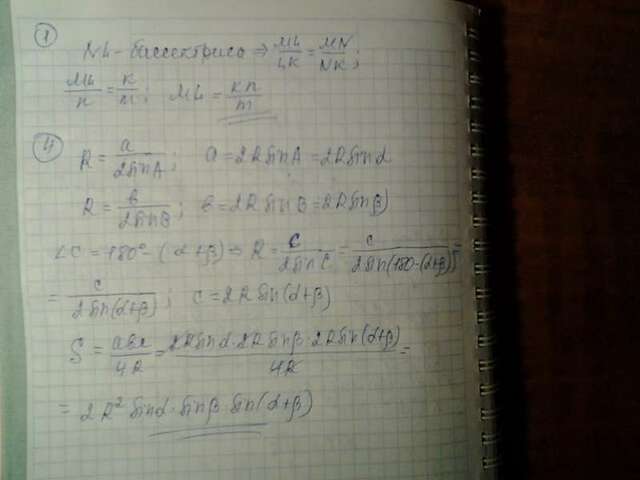 ①
NL - биссектриса ⇒ ML/LK = MN/NK;
ML/n = k/m; ML = kn/m
④
R = a/2sinA; a = 2R sinA = 2R sinα
R = b/2sinB; b = 2R sinB = 2R sinβ
∠C = 180° - (α+β) ⇒ R = c/2sinC = c/2sin(180-(α+β)) =
= c/2sin(α+β); c = 2R sin(α+β)
S = abc/4R = 2Rsinα·2Rsinβ·2Rsin(α+β)/4R =
= 2R² sinα·sinβ·sin(α+β)